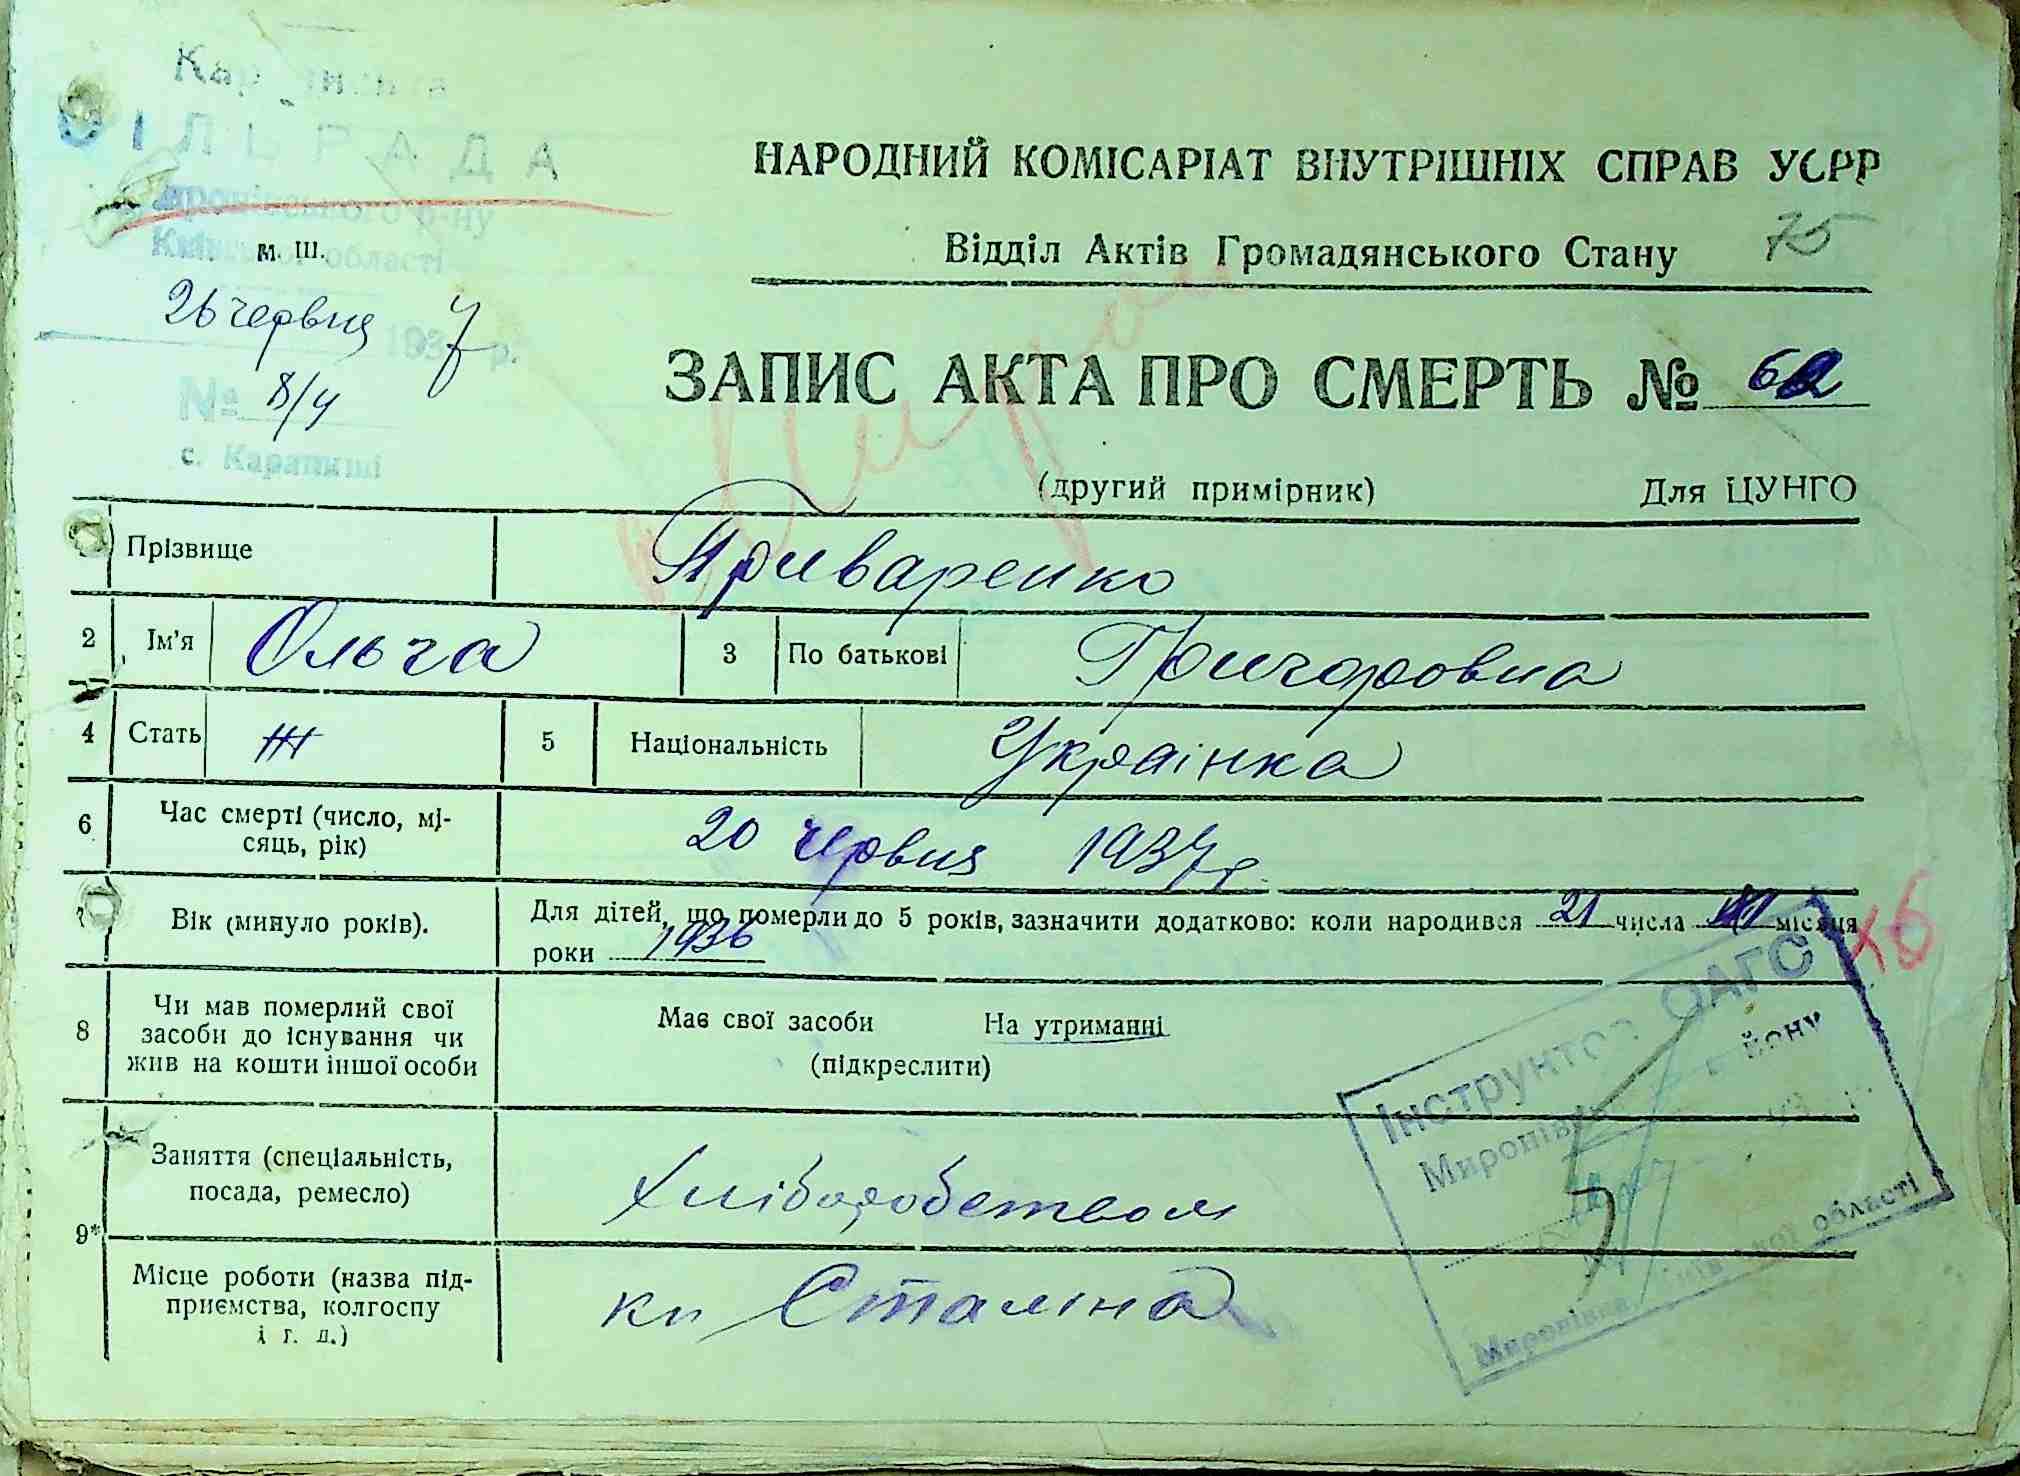 СІЛЬРАДА
Миронівського р-ну
Київської області
М. Ш.
26 червня 1937 р.
№ 8/4
с. Карапиші
НАРОДНИЙ КОМІСАРІАТ ВНУТРІШНІХ СПРАВ УСРР
Відділ Актів Громадянського Стану
75
ЗАПИС АКТА ПРО СМЕРТЬ № 62
(другий примірник) Для ЦУНГО
Прізвище Приваренко
2 Ім'я Ольга 3 По батькові Григоровна
4 Стать Ж 5 Національність Українка
6 Час смерті (число, мі-
сяць, рік) 20 червня 1937 р.
Вік (минуло років). Для дітей, що померли до 5 років, зазначити додатково: коли народився 21 числа місяця
роки 1936
8 Чи мав померлий свої
засоби до існування чи
жив на кошти іншої особи
Має свої засоби На утриманні
(підкреслити)
9* Заняття (спеціальність,
посада, ремесло) Хліборобством
Місце роботи (назва під-
приємства, колгоспу
і т. д.) кп Сталіна
Інструктор ОАГС
Миронівського району
Миронівка, Київської області